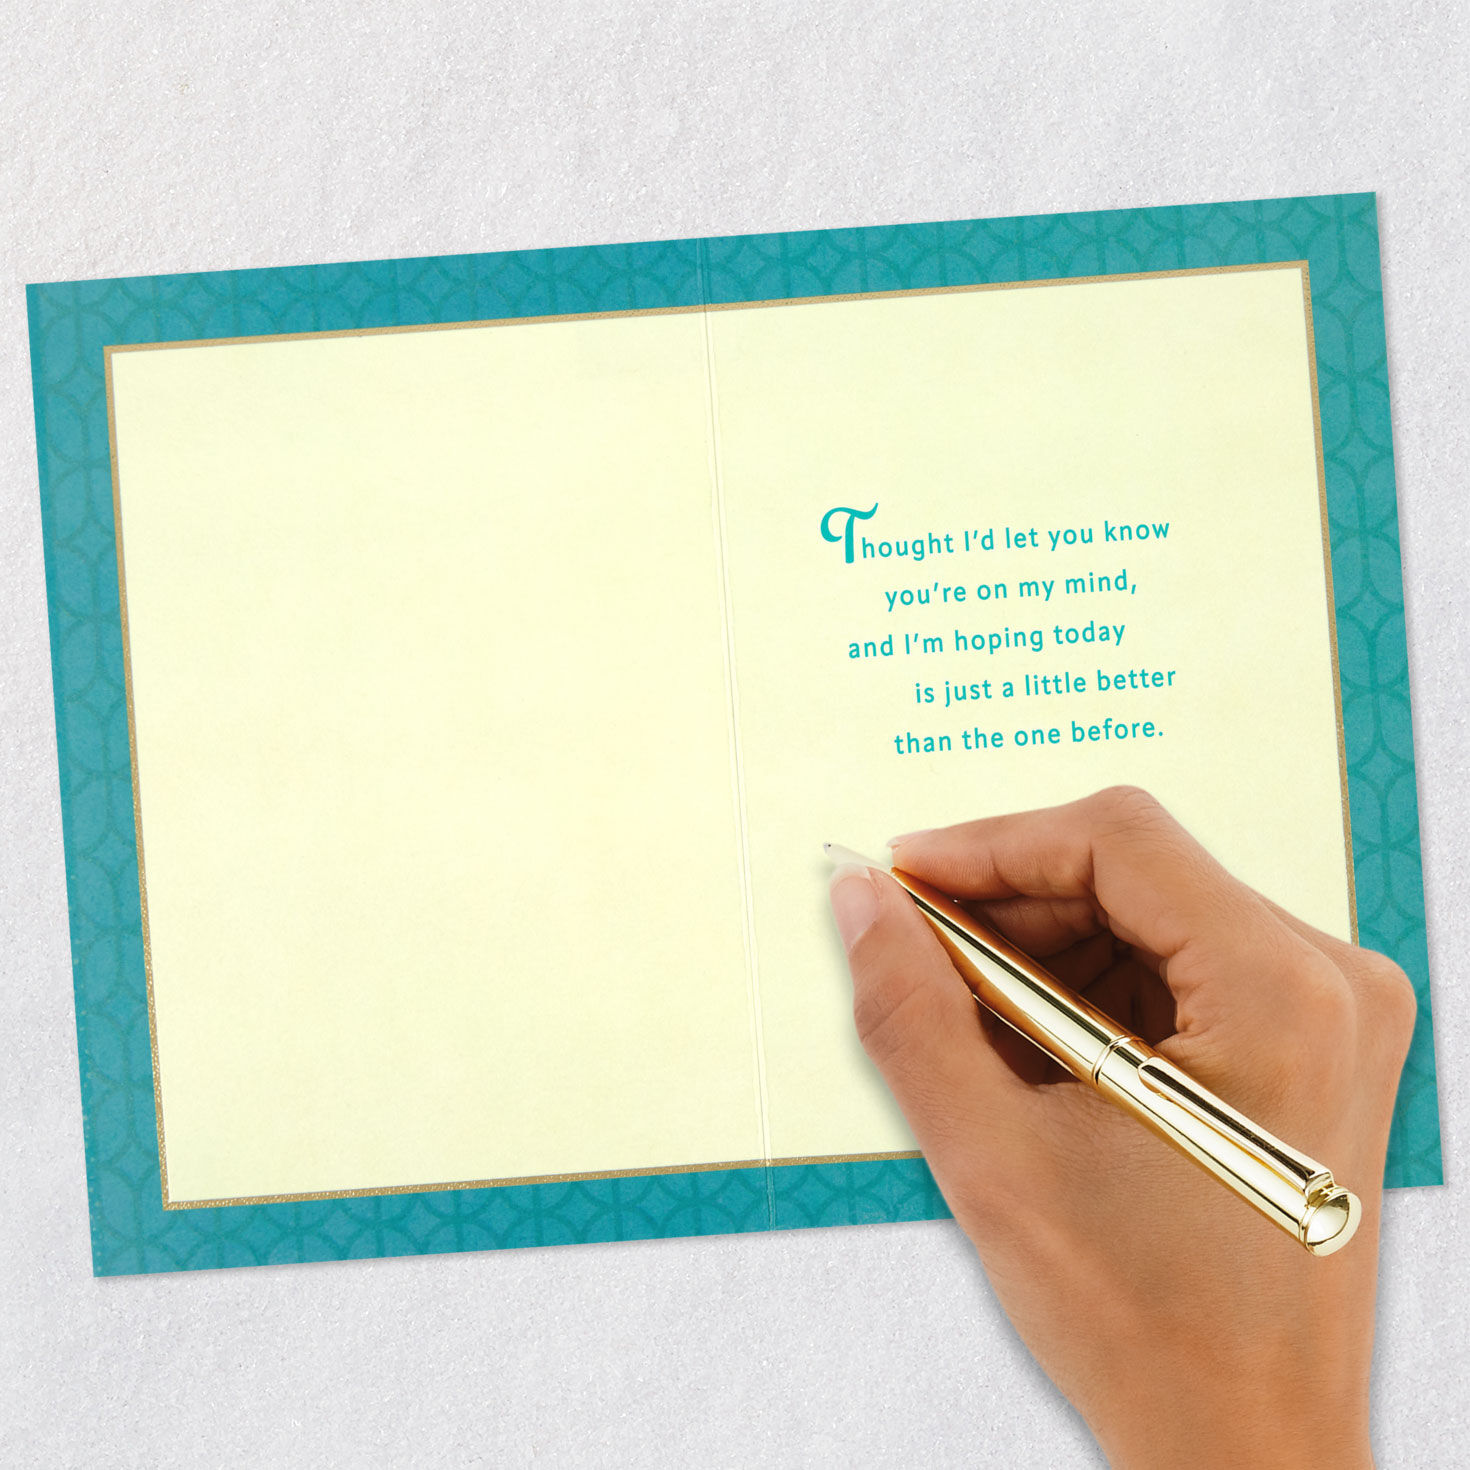 Thought I'd let you know
you're on my mind,
and I'm hoping today
is just a little better
than the one before.